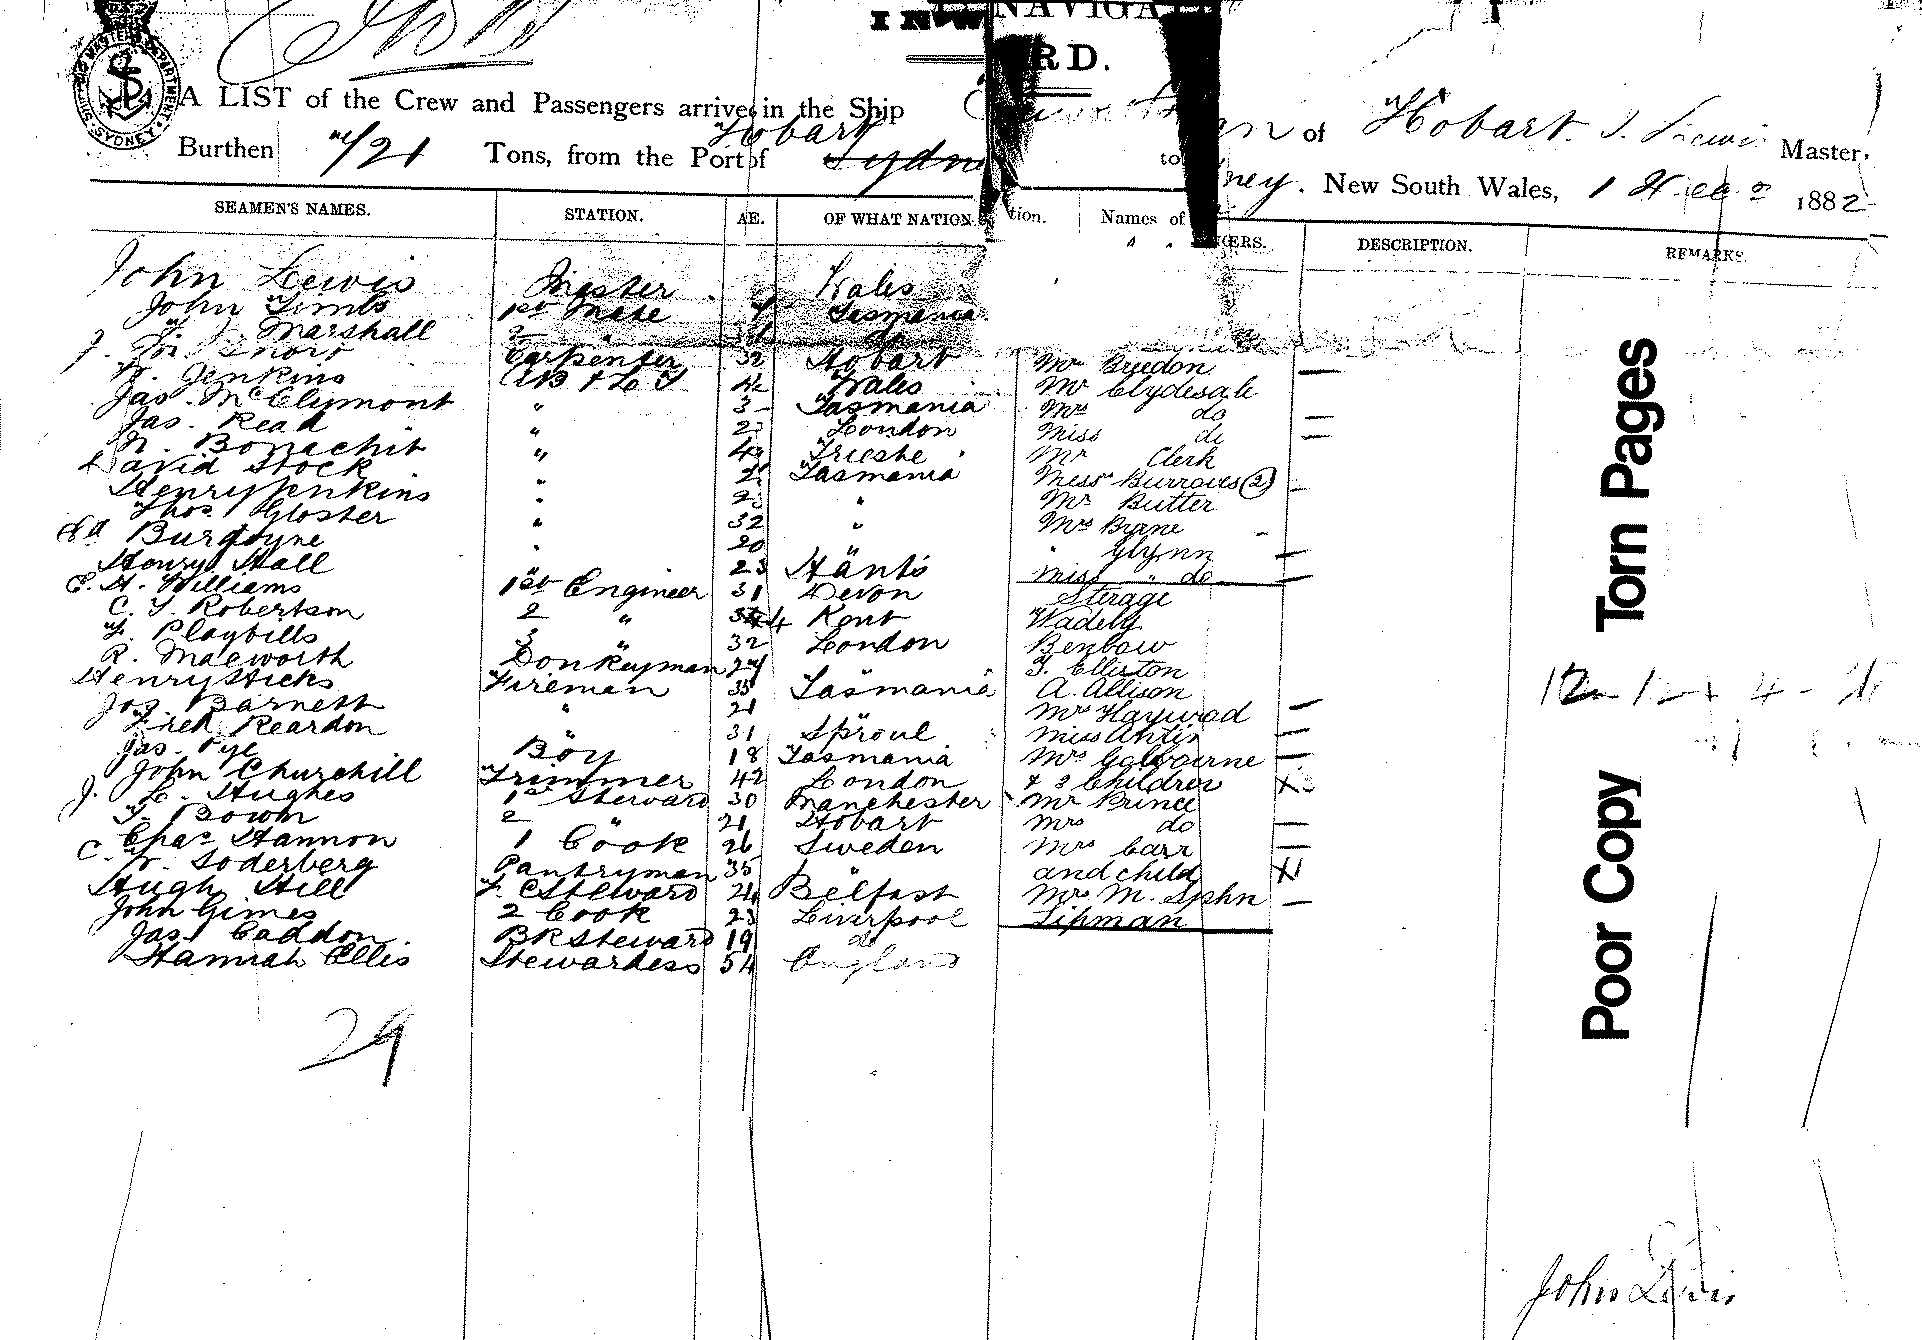 NAVIGA
INW RD.
SHIPPING MASTER'S DEPARTMENT SYDNEY
A LIST of the Crew and Passengers arrived in the Ship of Hobart. J. Lewis Master,
Burthen 4/21 Tons, from the Port of Hobart Sydne to ney. New South Wales, 1 1882
SEAMEN'S NAMES. STATION. AE. OF WHAT NATION. tion. Names of GERS. DESCRIPTION. REMARKS.
John Lewis Master Wales
John Timbs 1st Mate Tasmania
Marshall 2 "
Carpenter 32 Hobart Mr Breedon
W. Jenkins Wales Mr Clydesdale
Jas. McClymont " Tasmania Mrs do
Jas. Read " London Miss do
N. Bonachit " Trieste Mr Clerk
David Stock " Tasmania Miss Burrows (2)
Henry Jenkins " " Mr Butter
Thos. Gloster " 32 " Mrs Byrne
Burgoyne " 20 " Glynn
Henry Hall " 23 Hants Miss " do
C. H. Williams 1st Engineer 31 Devon Sterage
C. J. Robertson 2 " 44 Kent Wadely
Playbills 3 " 32 London Benbow
R. Macworth Donkeyman 27 " J. Elliston
Henry Hicks Fireman 35 Tasmania A. Allison
Jos. Barnett " 21 " Mrs Haywood
Fred Reardon " 31 Sproul Miss Antin
Jas. Pye Boy 18 Tasmania Mrs Golbourne
John Churchill Trimmer 42 London & 3 Children
J. L. Hughes 1st Steward 30 Manchester Mr Prince
F. Bown 2 " 21 Hobart Mrs do
Chas. Hannon 1 Cook 26 Sweden Mrs Carr
C. W. Soderberg Pantryman 35 " and child
Hugh Hill F. C Steward 24 Belfast Mrs M. Sphn
John Gimes 2 Cook 23 Liverpool Lipman
Jas. Caddon. BR Steward 19 do
Hannah Ellis Stewardess 54 England
29
Torn Pages
Poor Copy
John Lewis